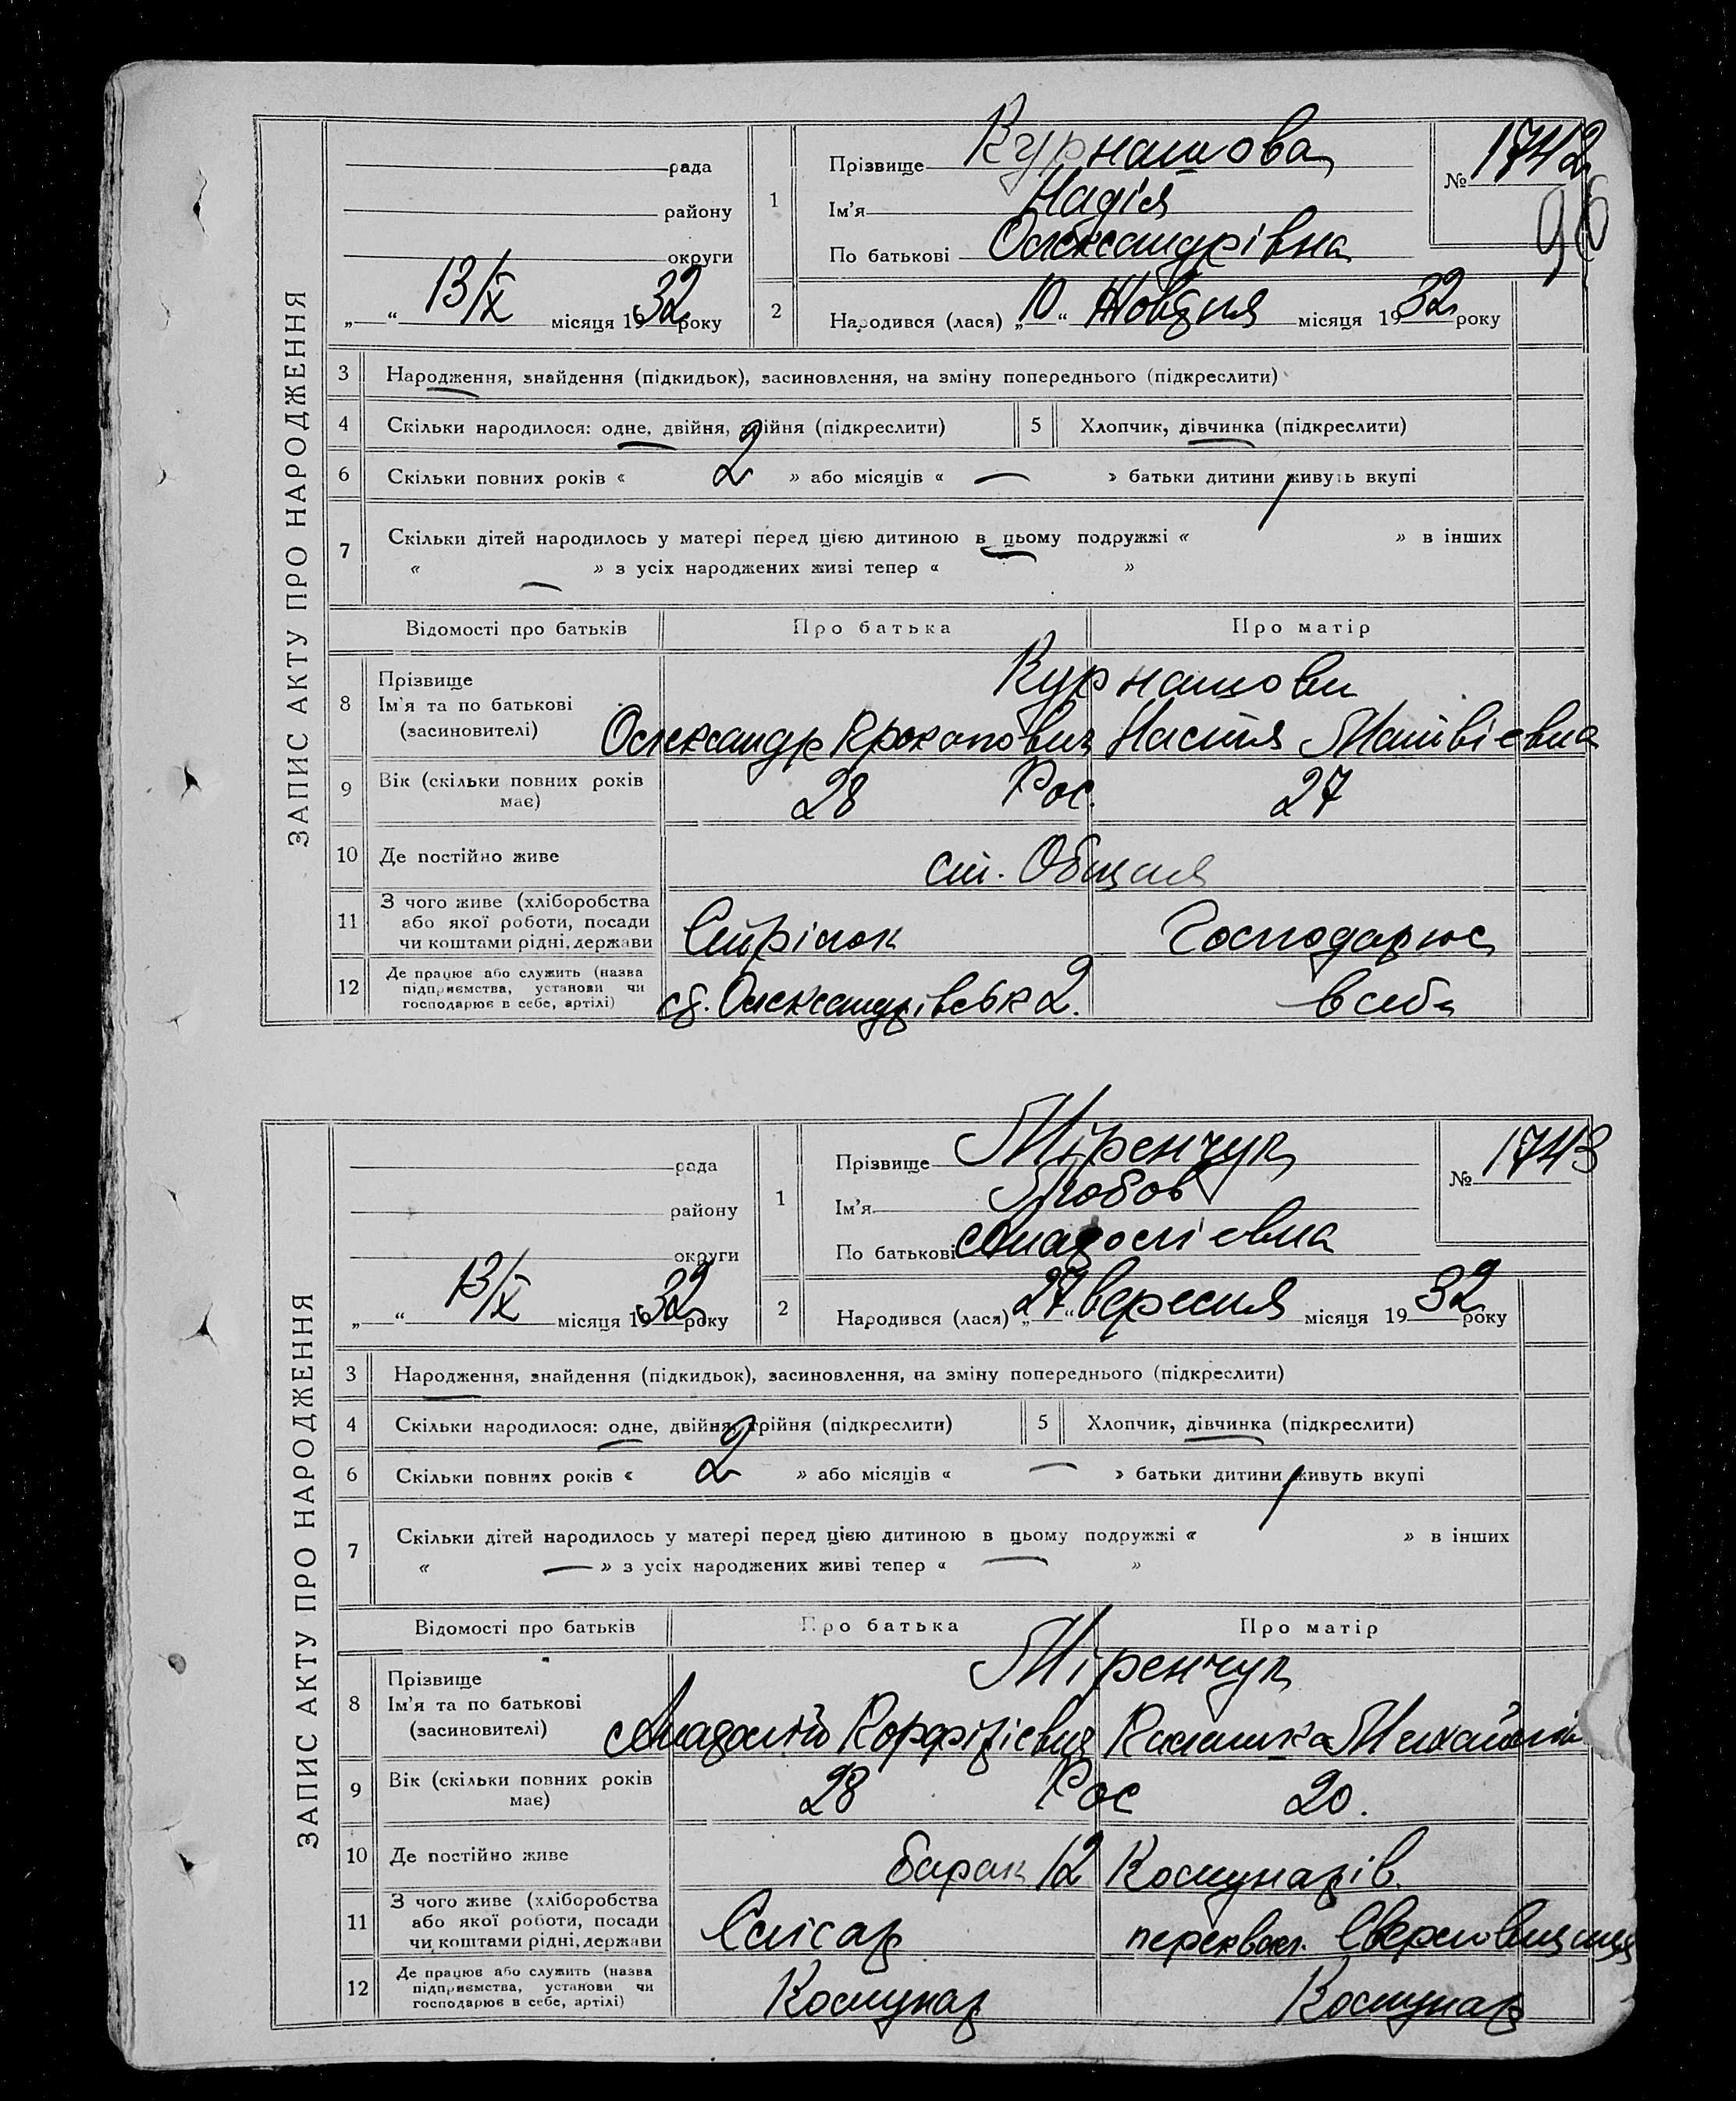 ЗАПИС АКТУ ПРО НАРОДЖЕННЯ
рада
району
округи
„ “ 13/X місяця 1932 року
1 Прізвище Курнашова
Ім'я Надія
По батькові Олександрівна
№ 1742
96
2 Народився (лася) „10“ Жовтня місяця 1932 року
3 Народження, знайдення (підкидьок), засиновлення, на зміну попереднього (підкреслити)
4 Скільки народилося: одне, двійня, трійня (підкреслити) 5 Хлопчик, дівчинка (підкреслити)
6 Скільки повних років « 2 » або місяців « — » батьки дитини живуть вкупі
7 Скільки дітей народилось у матері перед цією дитиною в цьому подружжі « » в інших
« — » з усіх народжених живі тепер « »
Відомості про батьків Про батька Про матір
8 Прізвище Ім'я та по батькові (засновителі) Курнашови
Олександр Прокопович Настя Матвієвна
9 Вік (скільки повних років має) 28 Рос. 27
10 Де постійно живе ст.
11 З чого живе (хліборобства або якої роботи, посади чи коштами рідні, держави Стрілок Господарює
12 Де працює або служить (назва підприємства, установи чи господарює в себе, артілі) ст. Олександрівськ 2. в себе
ЗАПИС АКТУ ПРО НАРОДЖЕННЯ
рада
району
округи
„ “ 13/X місяця 1932 року
1 Прізвище Міренчук
Ім'я Любов
По батькові Анатолієвна
№ 1743
2 Народився (лася) „27“ вересня місяця 1932 року
3 Народження, знайдення (підкидьок), засиновлення, на зміну попереднього (підкреслити)
4 Скільки народилося: одне, двійня, трійня (підкреслити) 5 Хлопчик, дівчинка (підкреслити)
6 Скільки повних років « 2 » або місяців « — » батьки дитини живуть вкупі
7 Скільки дітей народилось у матері перед цією дитиною в цьому подружжі « » в інших
« — » з усіх народжених живі тепер « — »
Відомості про батьків Про батька Про матір
8 Прізвище Ім'я та по батькові (засиновителі) Міренчук
Анатолій
9 Вік (скільки повних років має) 28 Рос 20.
10 Де постійно живе барак 12 Комунарів.
11 З чого живе (хліборобства або якої роботи, посади чи коштами рідні, держави Слісар
12 Де працює або служить (назва підприємства, установи чи господарює в себе, артілі) Комунар Комунар